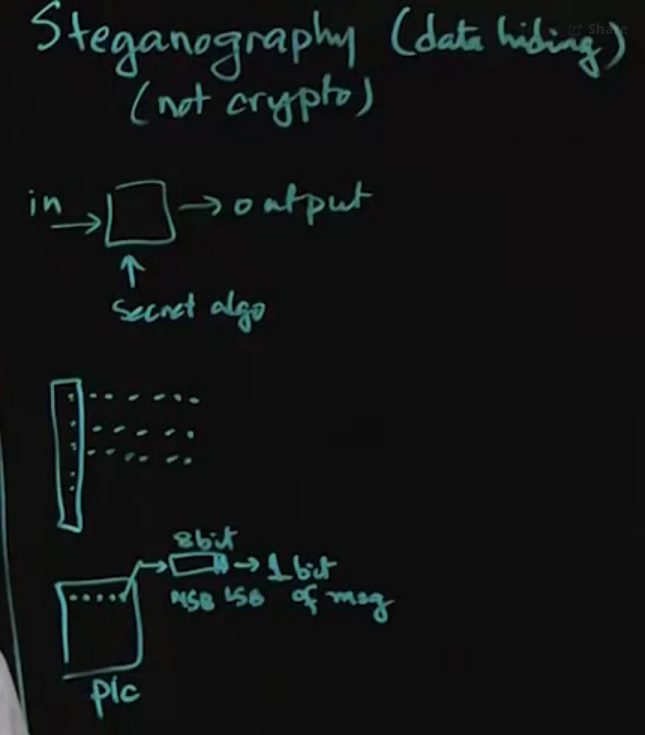 Steganography (data hiding)
Share
(not crypto)
in → □ → output
↑
Secret algo
8bit
→ 1 bit
MSB LSB of msg
pic